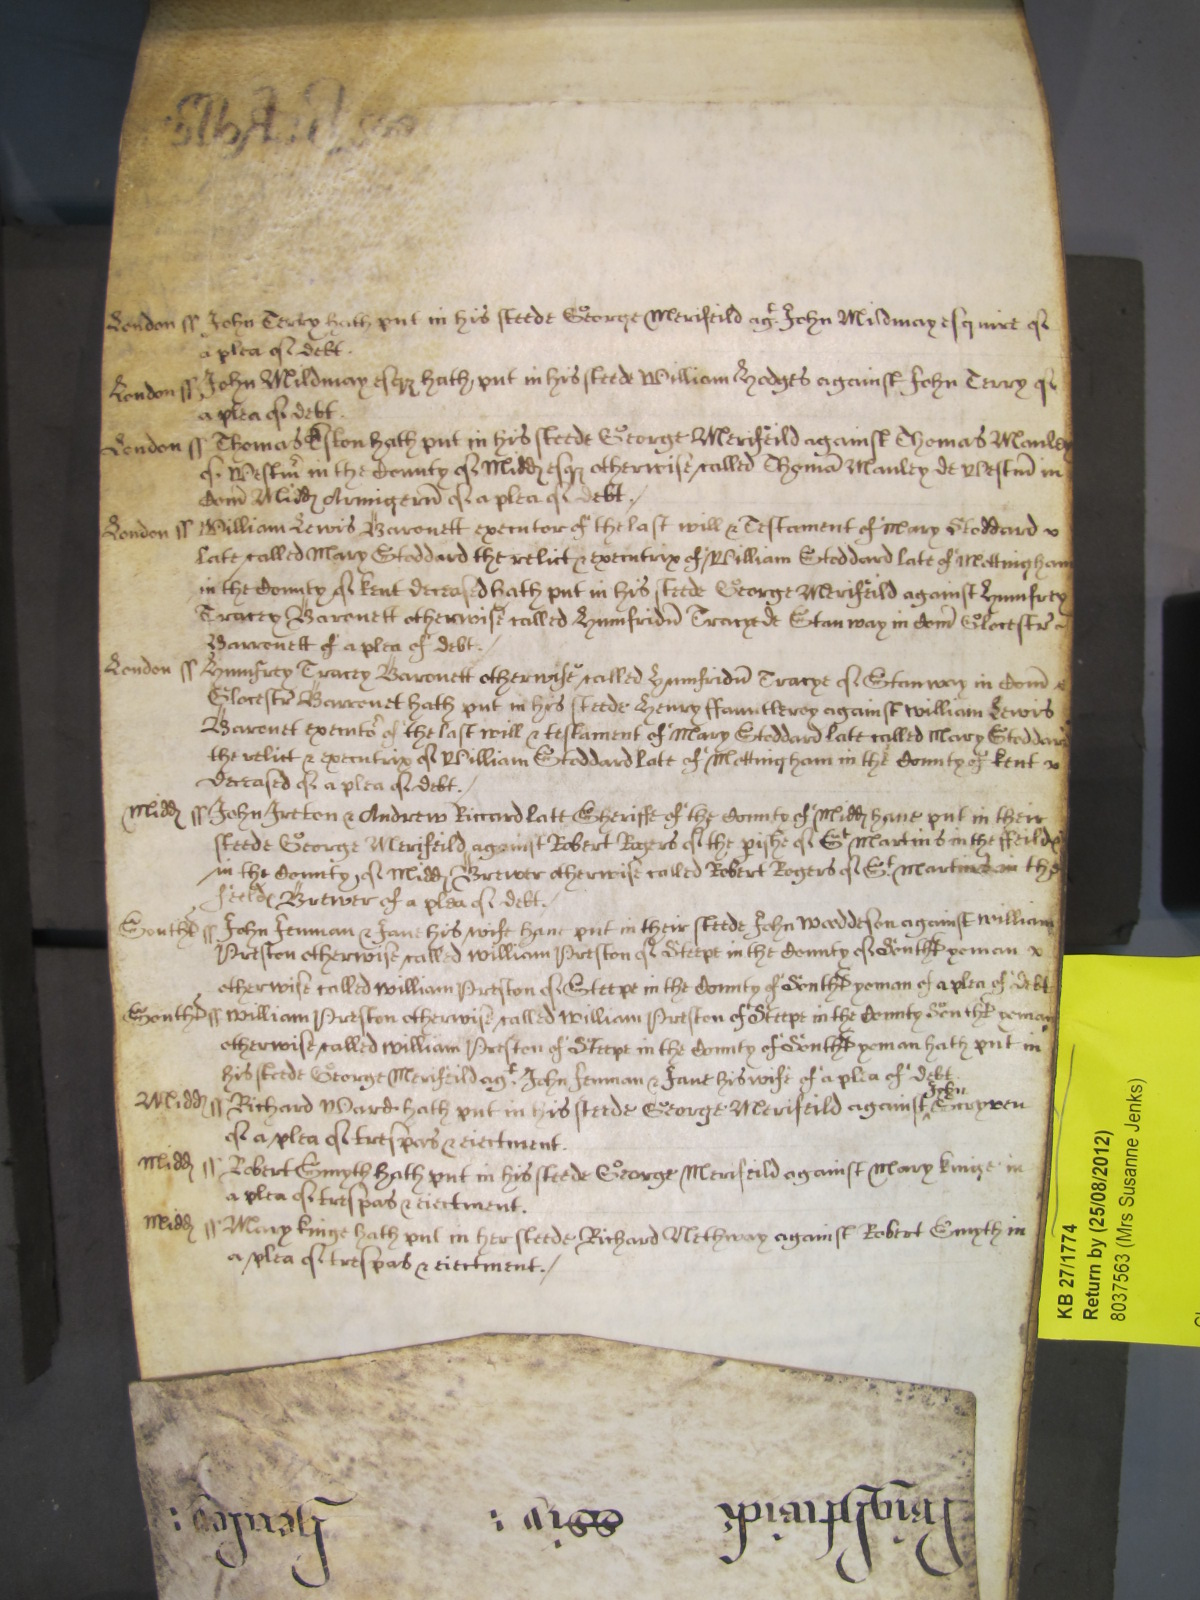 London ss John Terry hath put in his steede George Merifeild agt John Mildmay esquire of
a plea of debt.
London ss John Mildmay esqr hath put in his steede William Hodges against John Terry of
a plea of debt.
London ss Thomas Eston hath put in his steede George Merifeild against Thomas Manley
of Westm in the County of Midd esqr otherwise called Thoma Manley de Westm in
Com Midd Armigerm of a plea of debt./
London ss William Lewis Baronett executor of the last will & Testament of Mary Stoddard
late called Mary Stoddard the relict & executrix of William Stoddard late of Mottingham
in the County of Kent deceased hath put in his steede George Merifeild against Humfrey
Tracey Baronett otherwise called Humfridu Tracye de Stanway in Com Glocestr
Barronett of a plea of debt./
London ss Humfrey Tracey Baronett otherwise called Humfridu Tracye of Stanway in Com
Glocestr Barronet hath put in his steede Henry ffauntleroy against William Lewis
Baronet executor of the last will & testament of Mary Stoddard late called Mary Stoddard
the relict & executrix of William Stoddard late of Mottingham in the County of Kent
deceased of a plea of debt./
Midd ss John Ireton & Andrew Riccard late Sheriffe of the County of Midd have put in their
steede George Merifeild against Robert Rogers of the pishe of St Martins in the ffeilds
in the County of Midd Brewer otherwise called Robert Rogers of St Martins in the
feelds Brewer of a plea of debt./
Southt ss John Fenman & Jane his wife have put in their steede John Woodeson against William
Preston otherwise called William Preston of Steepe in the County of Southt yoman
otherwise called William Preston of Steepe in the County of Southt yoman of a plea of debt
Southt ss William Preston otherwise called William Preston of Steepe in the County Southt yoman
otherwise called William Preston of Steepe in the County of Southt yoman hath put in
his steede George Merifeild agt John Fenman & Jane his wife of a plea of debt.
Midd ss Richard Ward hath put in his steede George Merifeild against John
of a plea of trespas & eiectment.
Midd ss Robert Smyth hath put in his steede George Merifeild against Mary Kinge in
a plea of trespas & eiectment.
Midd ss Mary Kinge hath put in her steede Richard Methway against Robert Smyth in
a plea of trespas & eiectment./
KB 27/1774
Return by (25/08/2012)
8037563 (Mrs Susanne Jenks)